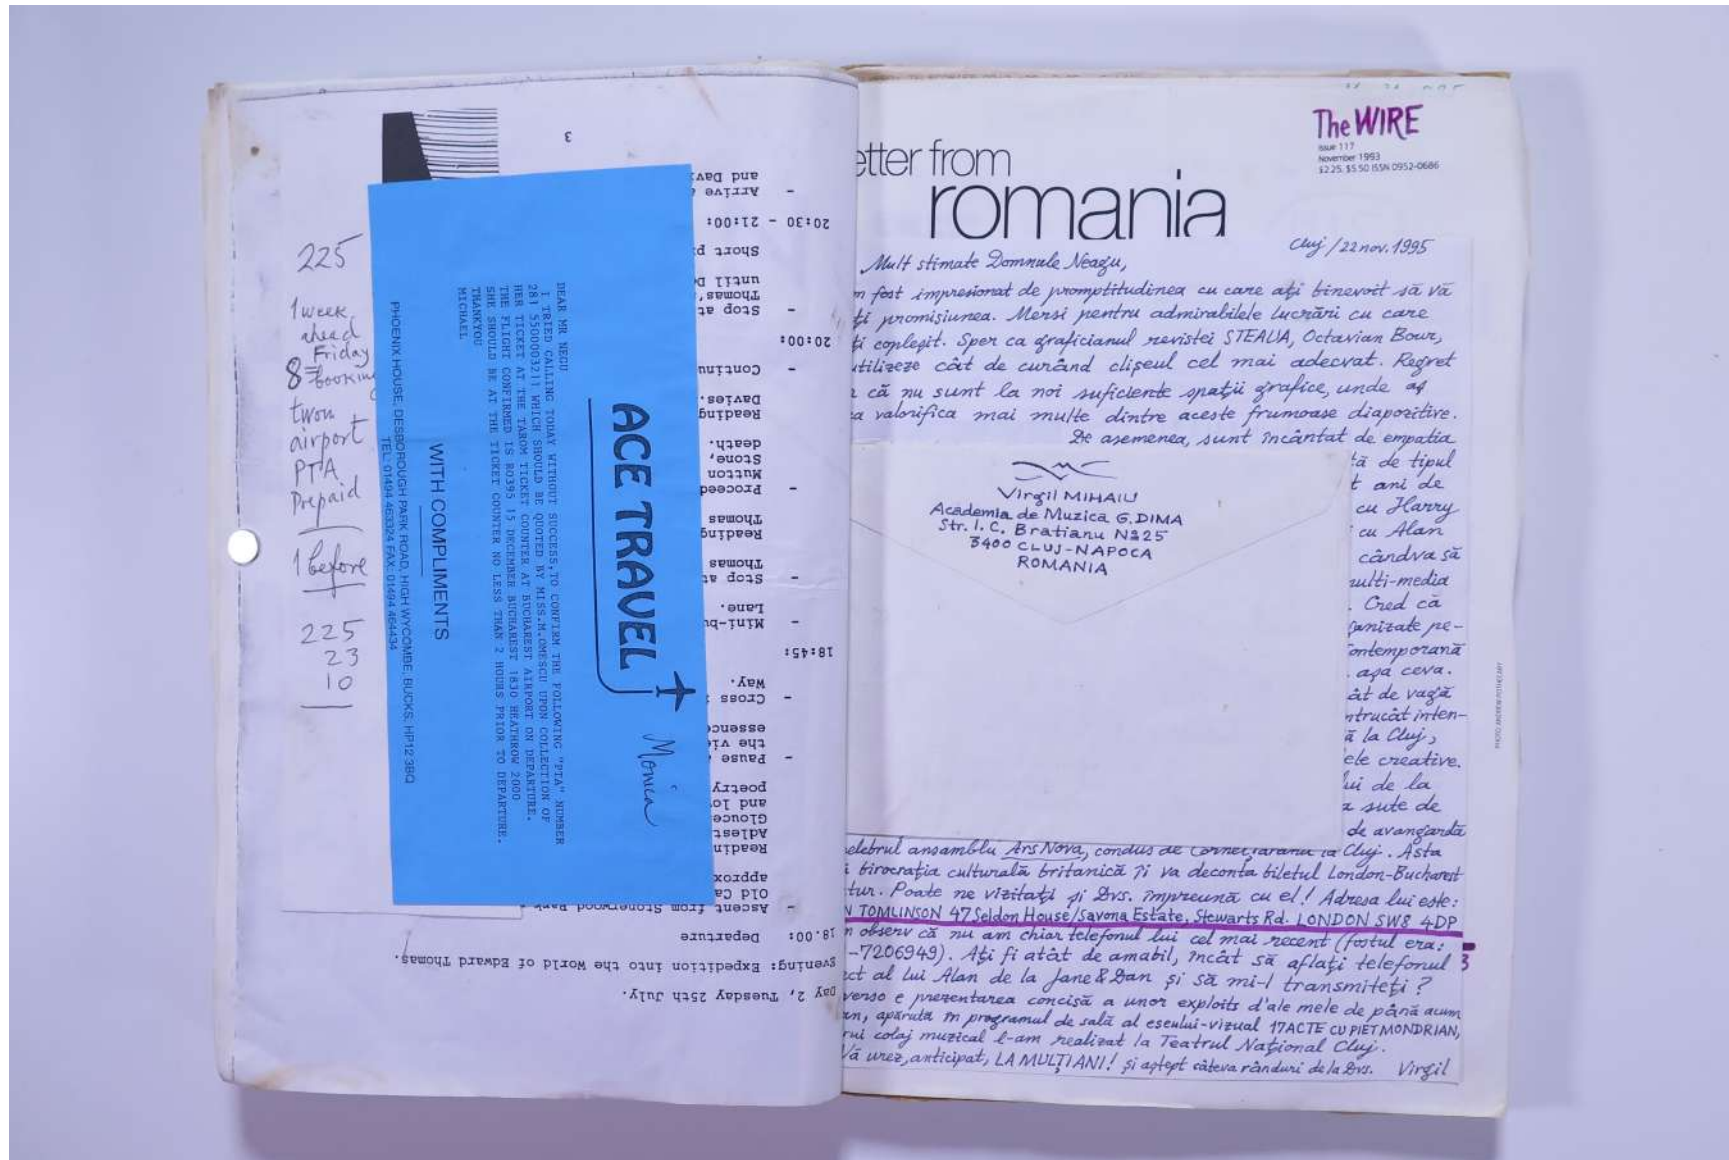 225
1 week
ahead
Friday
8
booking
airport
PTA
Prepaid
1 before
225
23
10
ACE TRAVEL
Monica
DEAR MR NEGU
I TRIED CALLING TODAY WITHOUT SUCCESS, TO CONFIRM THE FOLLOWING "PTA" NUMBER
281 5500003211 WHICH SHOULD BE QUOTED BY MISS.M.OMESCU UPON COLLECTION OF
HER TICKET AT THE TAROM TICKET COUNTER AT BUCHAREST AIRPORT ON DEPARTURE.
THE FLIGHT CONFIRMED IS RO395 15 DECEMBER BUCHAREST 1830 HEATHROW 2000
SHE SHOULD BE AT THE TICKET COUNTER NO LESS THAN 2 HOURS PRIOR TO DEPARTURE.
THANKYOU
MICHAEL
WITH COMPLIMENTS
PHOENIX HOUSE, DESBOROUGH PARK ROAD, HIGH WYCOMBE, BUCKS. HP12 3BQ
TEL: 01494 463324 FAX: 01494 464434
Day 2, Tuesday 25th July.
evening: Expedition into the World of Edward Thomas.
18.00: Departure
- Ascent from Stonerwood Park
Old Ca
approx
Readin
Adlest
Glouce
and lo
poetry
- Pause
the vie
essence
- Cross
Way.
18:45:
- Mini-bu
Lane.
- Stop at
Thomas
Reading
Thomas
- Proceed
Mutton
Stone,
death.
Reading
Davies.
- Continu
20:00:
- Stop at
Thomas,
until D
Short p
20:30 - 21:00:
- Arrive
and Davi
3
The WIRE
Issue 117
November 1993
£2.25. $5.50 ISSN 0952-0686
etter from
romania
Cluj / 22 nov. 1995
Mult stimate Domnule Neagu,
m fost impresionat de promptitudinea cu care ați binevoit să vă
ți promisiunea. Mersi pentru admirabilele lucrări cu care
ți copleșit. Sper ca graficianul revistei STEAUA, Octavian Bour,
utilizeze cât de curând clișeul cel mai adecvat. Regret
că nu sunt la noi suficiente spații grafice, unde aș
a valorifica mai multe dintre aceste frumoase diapozitive.
De asemenea, sunt încântat de empatia
tă de tipul
t ani de
cu Harry
cu Alan
cândva să
multi-media
. Cred că
ganizate pe-
contemporană
. așa ceva.
ât de vagă
ntrucât inten-
ă la Cluj,
ele creative.
lui de la
a sute de
de avangardă
Virgil MIHAIU
Academia de Muzica G.DIMA
Str. I.C. Bratianu No 25
3400 CLUJ-NAPOCA
ROMANIA
elebrul ansamblu Ars Nova, condus de Cornel Țăranu la Cluj. Asta
i birocrația culturală britanică îi va deconta biletul London-Bucharest
tur. Poate ne vizitați și Dvs. împreună cu el! Adresa lui este:
N TOMLINSON 47 Seldon House/Savona Estate, Stewarts Rd. LONDON SW8 4DP
m observ că nu am chiar telefonul lui cel mai recent (fostul era:
-7206949). Ați fi atât de amabil, încât să aflați telefonul
ct al lui Alan de la Jane & Dan și să mi-l transmiteți?
verso e prezentarea concisă a unor exploits d'ale mele de până acum
an, apăruta în programul de sală al eseului-vizual 17 ACTE CU PIET MONDRIAN,
rui colaj muzical l-am realizat la Teatrul Național Cluj.
Vă urez, anticipat, LA MULȚI ANI! și aștept câteva rânduri de la Dvs. Virgil